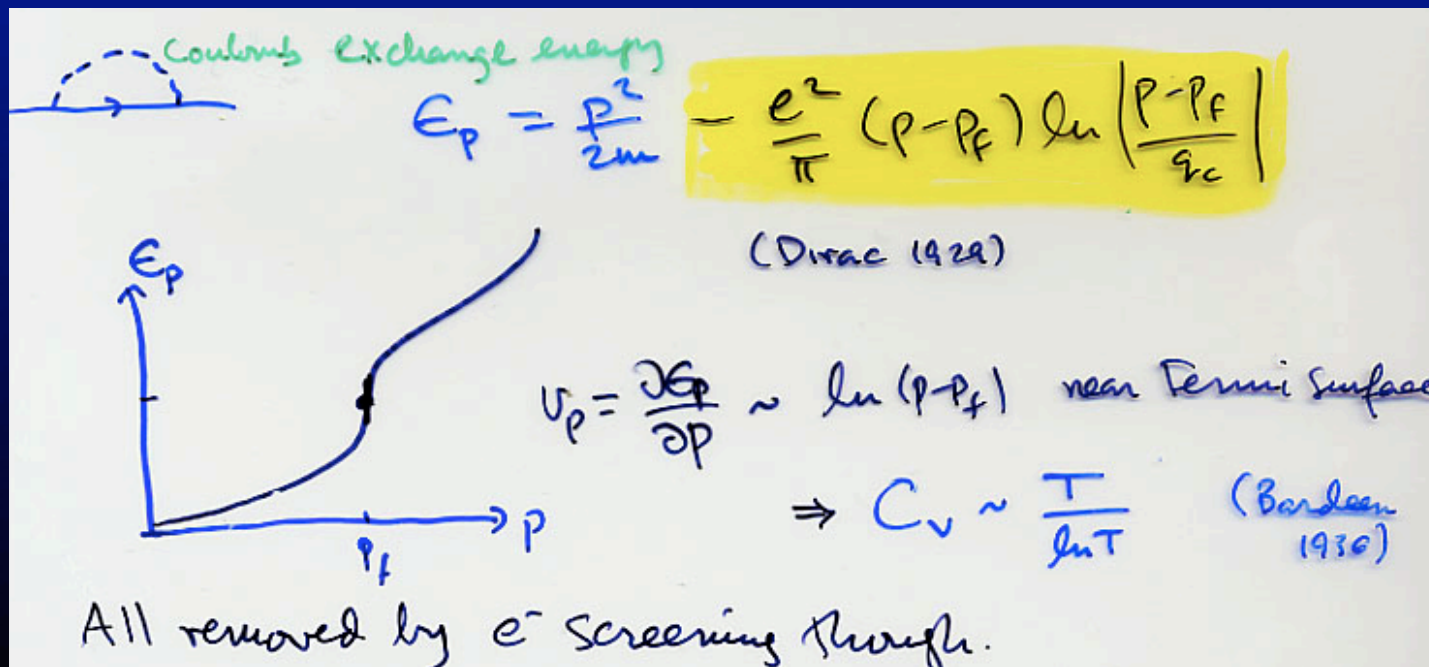 Coulomb exchange energy
ϵ_p = p²/2m - e²/π (p-p_f) ln |p-p_f/q_c|
(Dirac 1929)
ϵ_p
v_p = ∂ϵ_p/∂p ~ ln (p-p_f) near Fermi surface
⇒ C_v ~ T/ln T (Bardeen 1936)
p_f
p
All removed by e⁻ screening though.